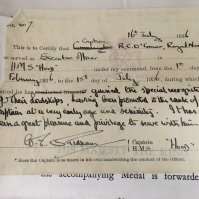 16th July 1936
This is to Certify that Captain R.C. O'Conor, Royal Navy
has served as Executive Officer
H.M.S. Hood, under my command, from the 1st
February 1936 to the 15th day of July 1936, during which
period he has gained the special recognition
of Their Lordships, having been promoted to the rank of
Captain at a very early age and seniority. It has
been a great pleasure and privilege to serve with him.
Captain
H.M.S. "Hood"
* Here the Captain is to insert in his own handwriting the conduct of the Officer.
the accompanying Medal is forwarded